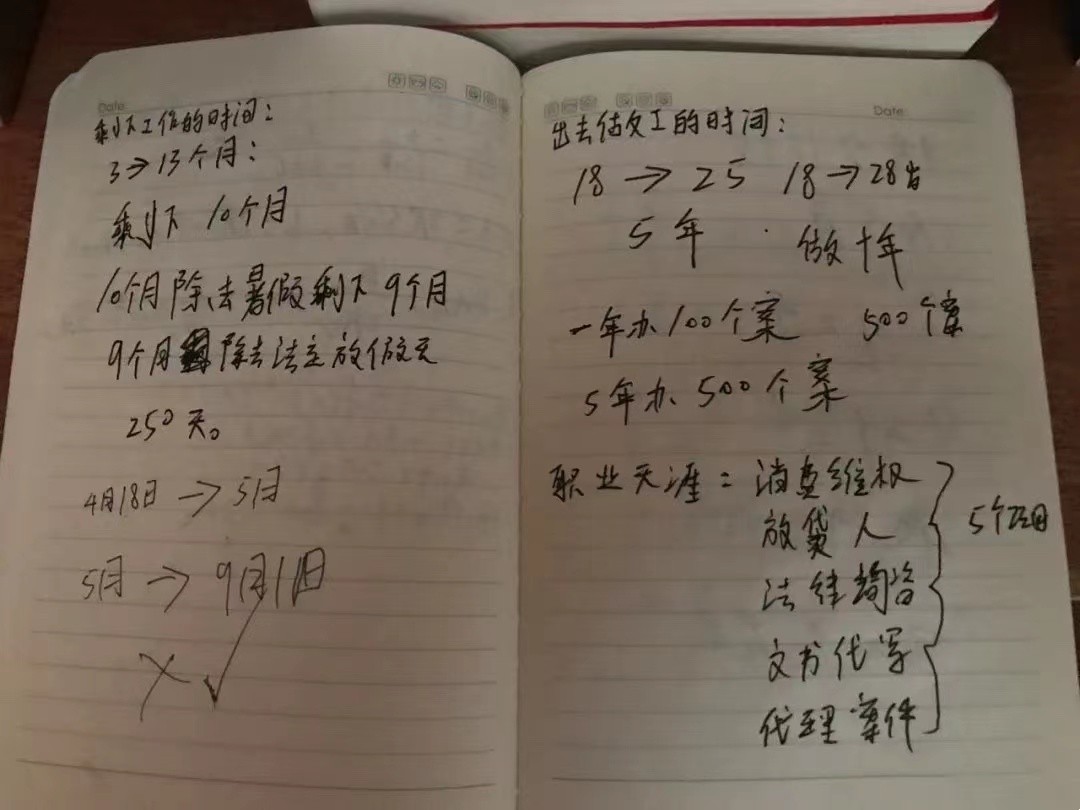 Date
剩下工作的时间:
3→13个月:
剩下 10个月
10个月除去暑假剩下 9个月
9个月除去法定放假天
250天。
4月18日 → 5月
5月 → 9月1日
× ✓
Date
出去做工的时间:
18 → 25 18→28岁
5年 · 做十年
一年办100个案 500个案
5年办500个案
职业天涯: 消费维权
放贷人
法律
文书代写
代理案件
5个项目